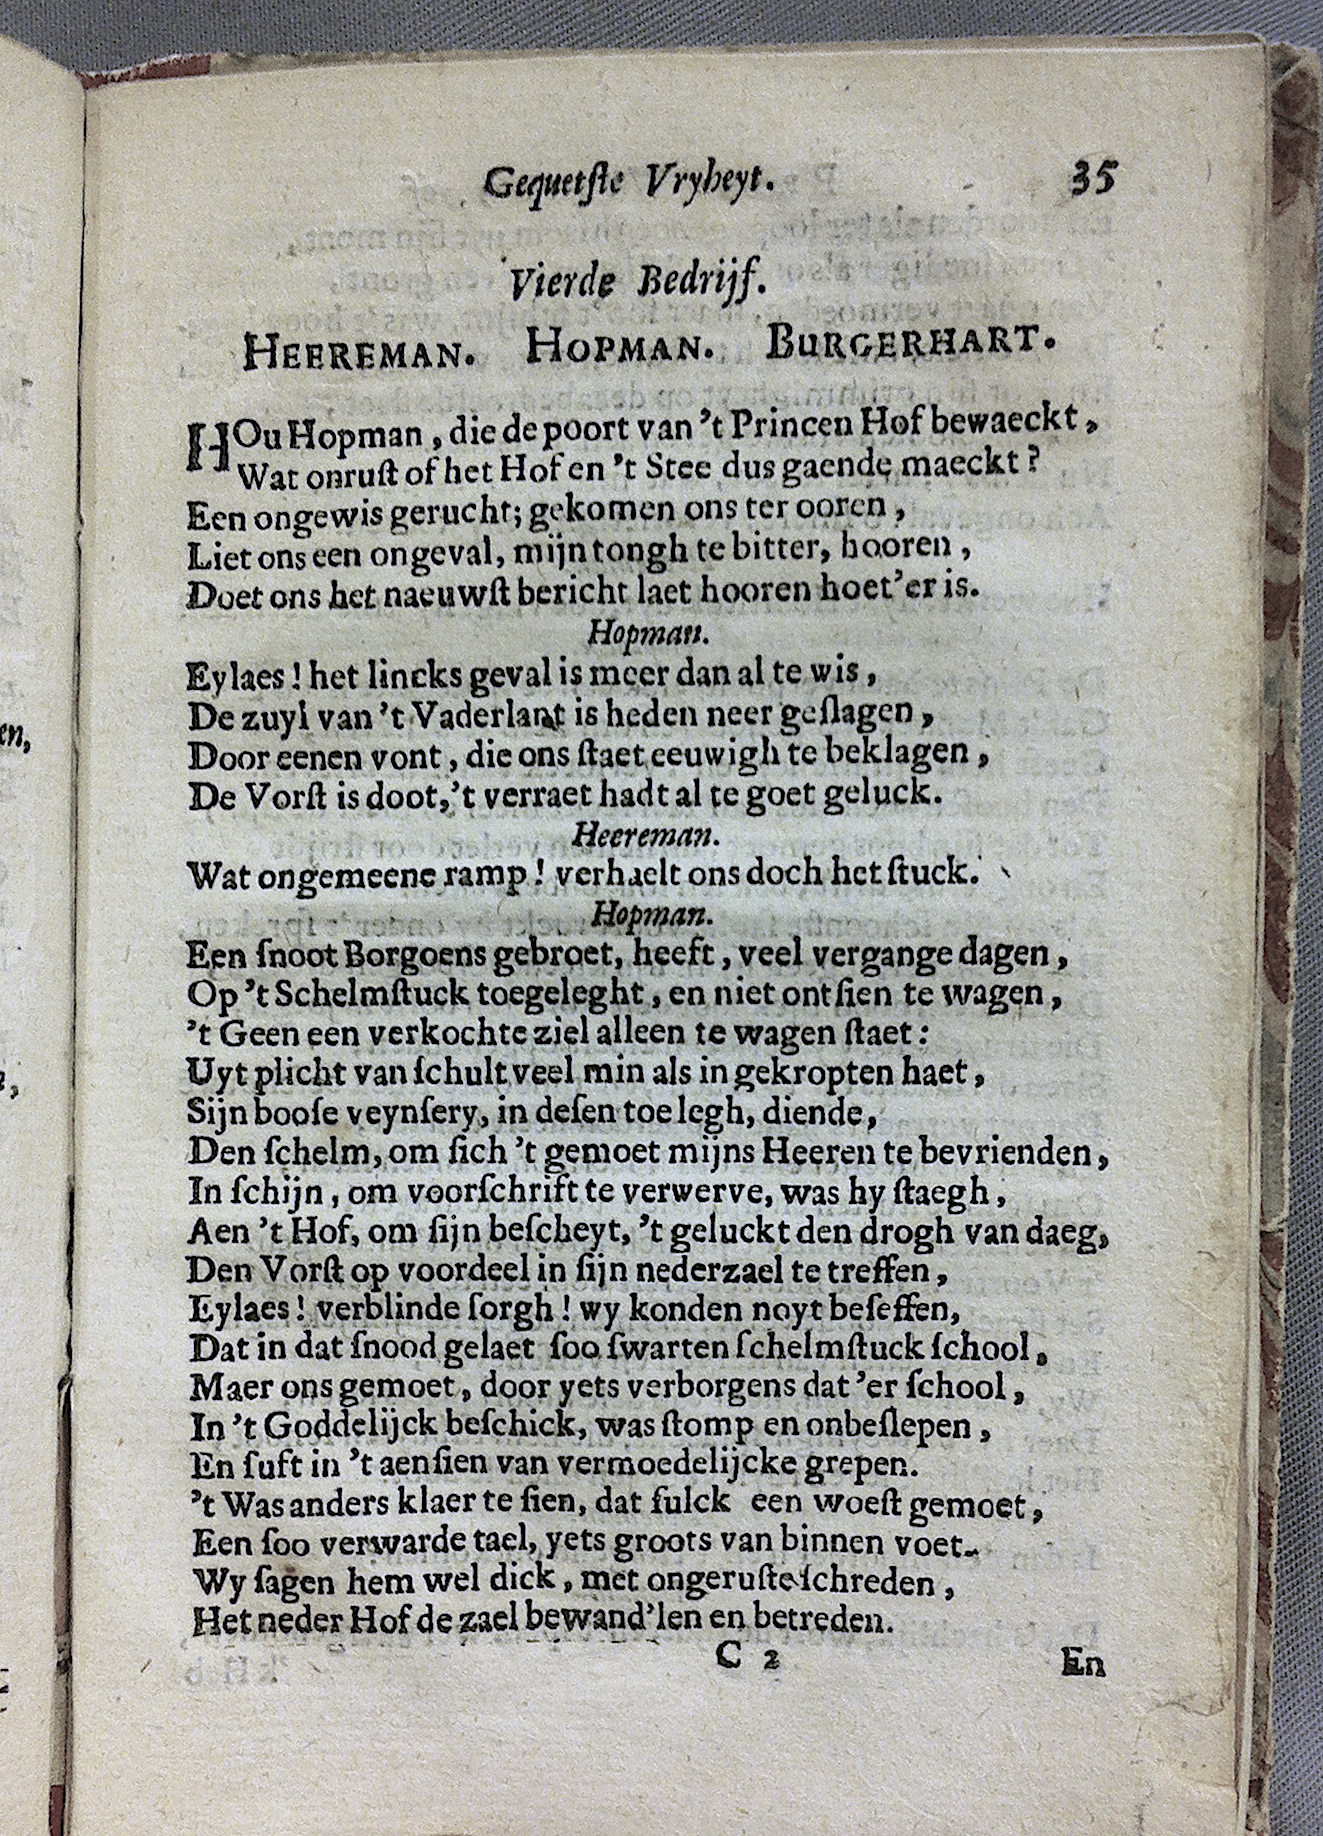 Gequetſte Vryheyt. 35
Vierde Bedrijf.
HEEREMAN. HOPMAN. BURGERHART.
HOu Hopman, die de poort van 't Princen Hof bewaeckt,
Wat onruſt of het Hof en 't Stee dus gaende maeckt?
Een ongewis gerucht; gekomen ons ter ooren,
Liet ons een ongeval, mijn tongh te bitter, hooren,
Doet ons het naeuwſt bericht laet hooren hoet'er is.
Hopman.
Eylaes! het lincks geval is meer dan al te wis,
De zuyl van 't Vaderlant is heden neer geſlagen,
Door eenen vont, die ons ſtaet eeuwigh te beklagen,
De Vorſt is doot,'t verraet hadt al te goet geluck.
Heereman.
Wat ongemeene ramp! verhaelt ons doch het ſtuck.
Hopman.
Een ſnoot Borgoens gebroet, heeft, veel vergange dagen,
Op 't Schelmſtuck toegeleght, en niet ontſien te wagen,
't Geen een verkochte ziel alleen te wagen ſtaet:
Uyt plicht van ſchult veel min als in gekropten haet,
Sijn booſe veynſery, in deſen toe legh, diende,
Den ſchelm, om ſich 't gemoet mijns Heeren te bevrienden,
In ſchijn, om voorſchrift te verwerve, was hy ſtaegh,
Aen 't Hof, om ſijn beſcheyt, 't geluckt den drogh van daeg,
Den Vorſt op voordeel in ſijn nederzael te treffen,
Eylaes! verblinde ſorgh! wy konden noyt beſeffen,
Dat in dat ſnood gelaet ſoo ſwarten ſchelmſtuck ſchool,
Maer ons gemoet, door yets verborgens dat 'er ſchool,
In 't Goddelijck beſchick, was ſtomp en onbeſlepen,
En ſuft in 't aenſien van vermoedelijcke grepen.
't Was anders klaer te ſien, dat ſulck een woeſt gemoet,
Een ſoo verwarde tael, yets groots van binnen voet.
Wy ſagen hem wel dick, met ongeruſte ſchreden,
Het neder Hof de zael bewand'len en betreden.
C 2 En